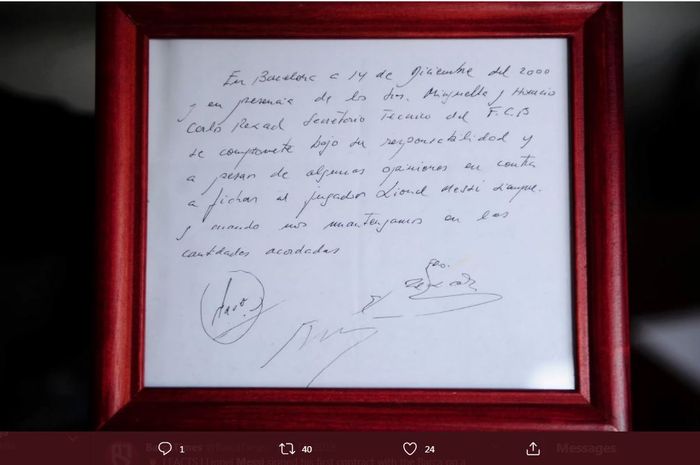 En Barcelona a 14 de Diciembre del 2000
y en presencia de los Srs. Minguella y Horacio
Carlo Rexad Secretario Tecnico del F.C.B
se compromete bajo su responsabilidad y
a pesar de algunas opiniones en contra
a fichar al jugador Lionel Messi siempre
y cuando nos mantengamos en las
cantidades acordadas
1
40
24
Messages